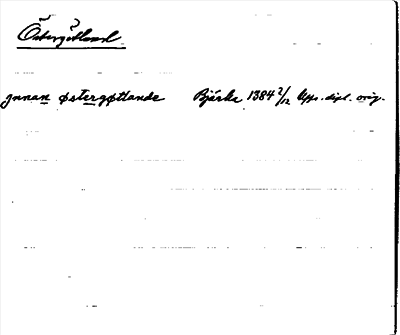 Östergötland
jnnan østergøtlande Bjärka 1384 2/12 Upps. dipl. orig.